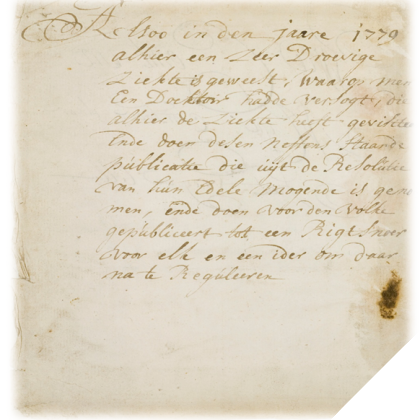 Alsoo in den jaare 1779
alhier een Zeer Droevige
Ziekte is geweest, waarop men
Een Docktoir hadde versogt, die
alhier de Ziekte heeft gevisitee
Ende doen desen neffens Staande
publicatie die uijt de Resolutie
van hún Edele Mogende is geno
men, ende doen voor den volke
gepúbliceert tot een Rigt Snoer
voor elk en een ider om daar
na te Regúleeren